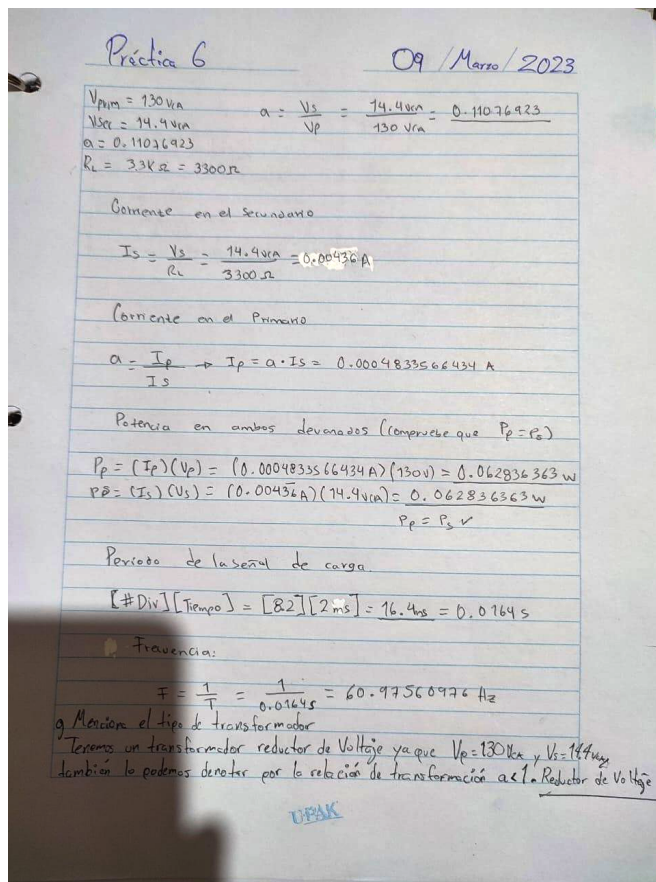 Práctica 6 09 / Marzo / 2023
Vprim = 130 VCA a = Vs/Vp = 14.4VCA/130 VCA = 0.11076923
VSec = 14.4 VCA
a = 0.11076923
RL = 3.3KΩ = 3300Ω
Corriente en el Secundario
Is = Vs/RL = 14.4VCA/3300Ω = 0.00436 A
Corriente en el Primario
a = Ip/Is → Ip = a · Is = 0.0004833566434 A
Potencia en ambos devanados (compruebe que Pp = Ps)
Pp = (Ip)(Vp) = (0.0004833566434A)(130v) = 0.062836363 w
Ps = (Is)(Vs) = (0.00436A)(14.4VCA) = 0.062836363 w
Pp = Ps ✓
Periodo de la señal de carga.
[#Div][Tiempo] = [8.2][2ms] = 16.4ms = 0.0164 s
Fravencia:
F = 1/T = 1/0.0164s = 60.97560976 Hz
g Mencione el tipo de transformador
Tenemos un transformador reductor de Voltaje ya que Vp=130VCA y Vs=14.4VCA,
también lo podemos denotar por la relación de transformación a<1. Reductor de Voltaje
UPAK